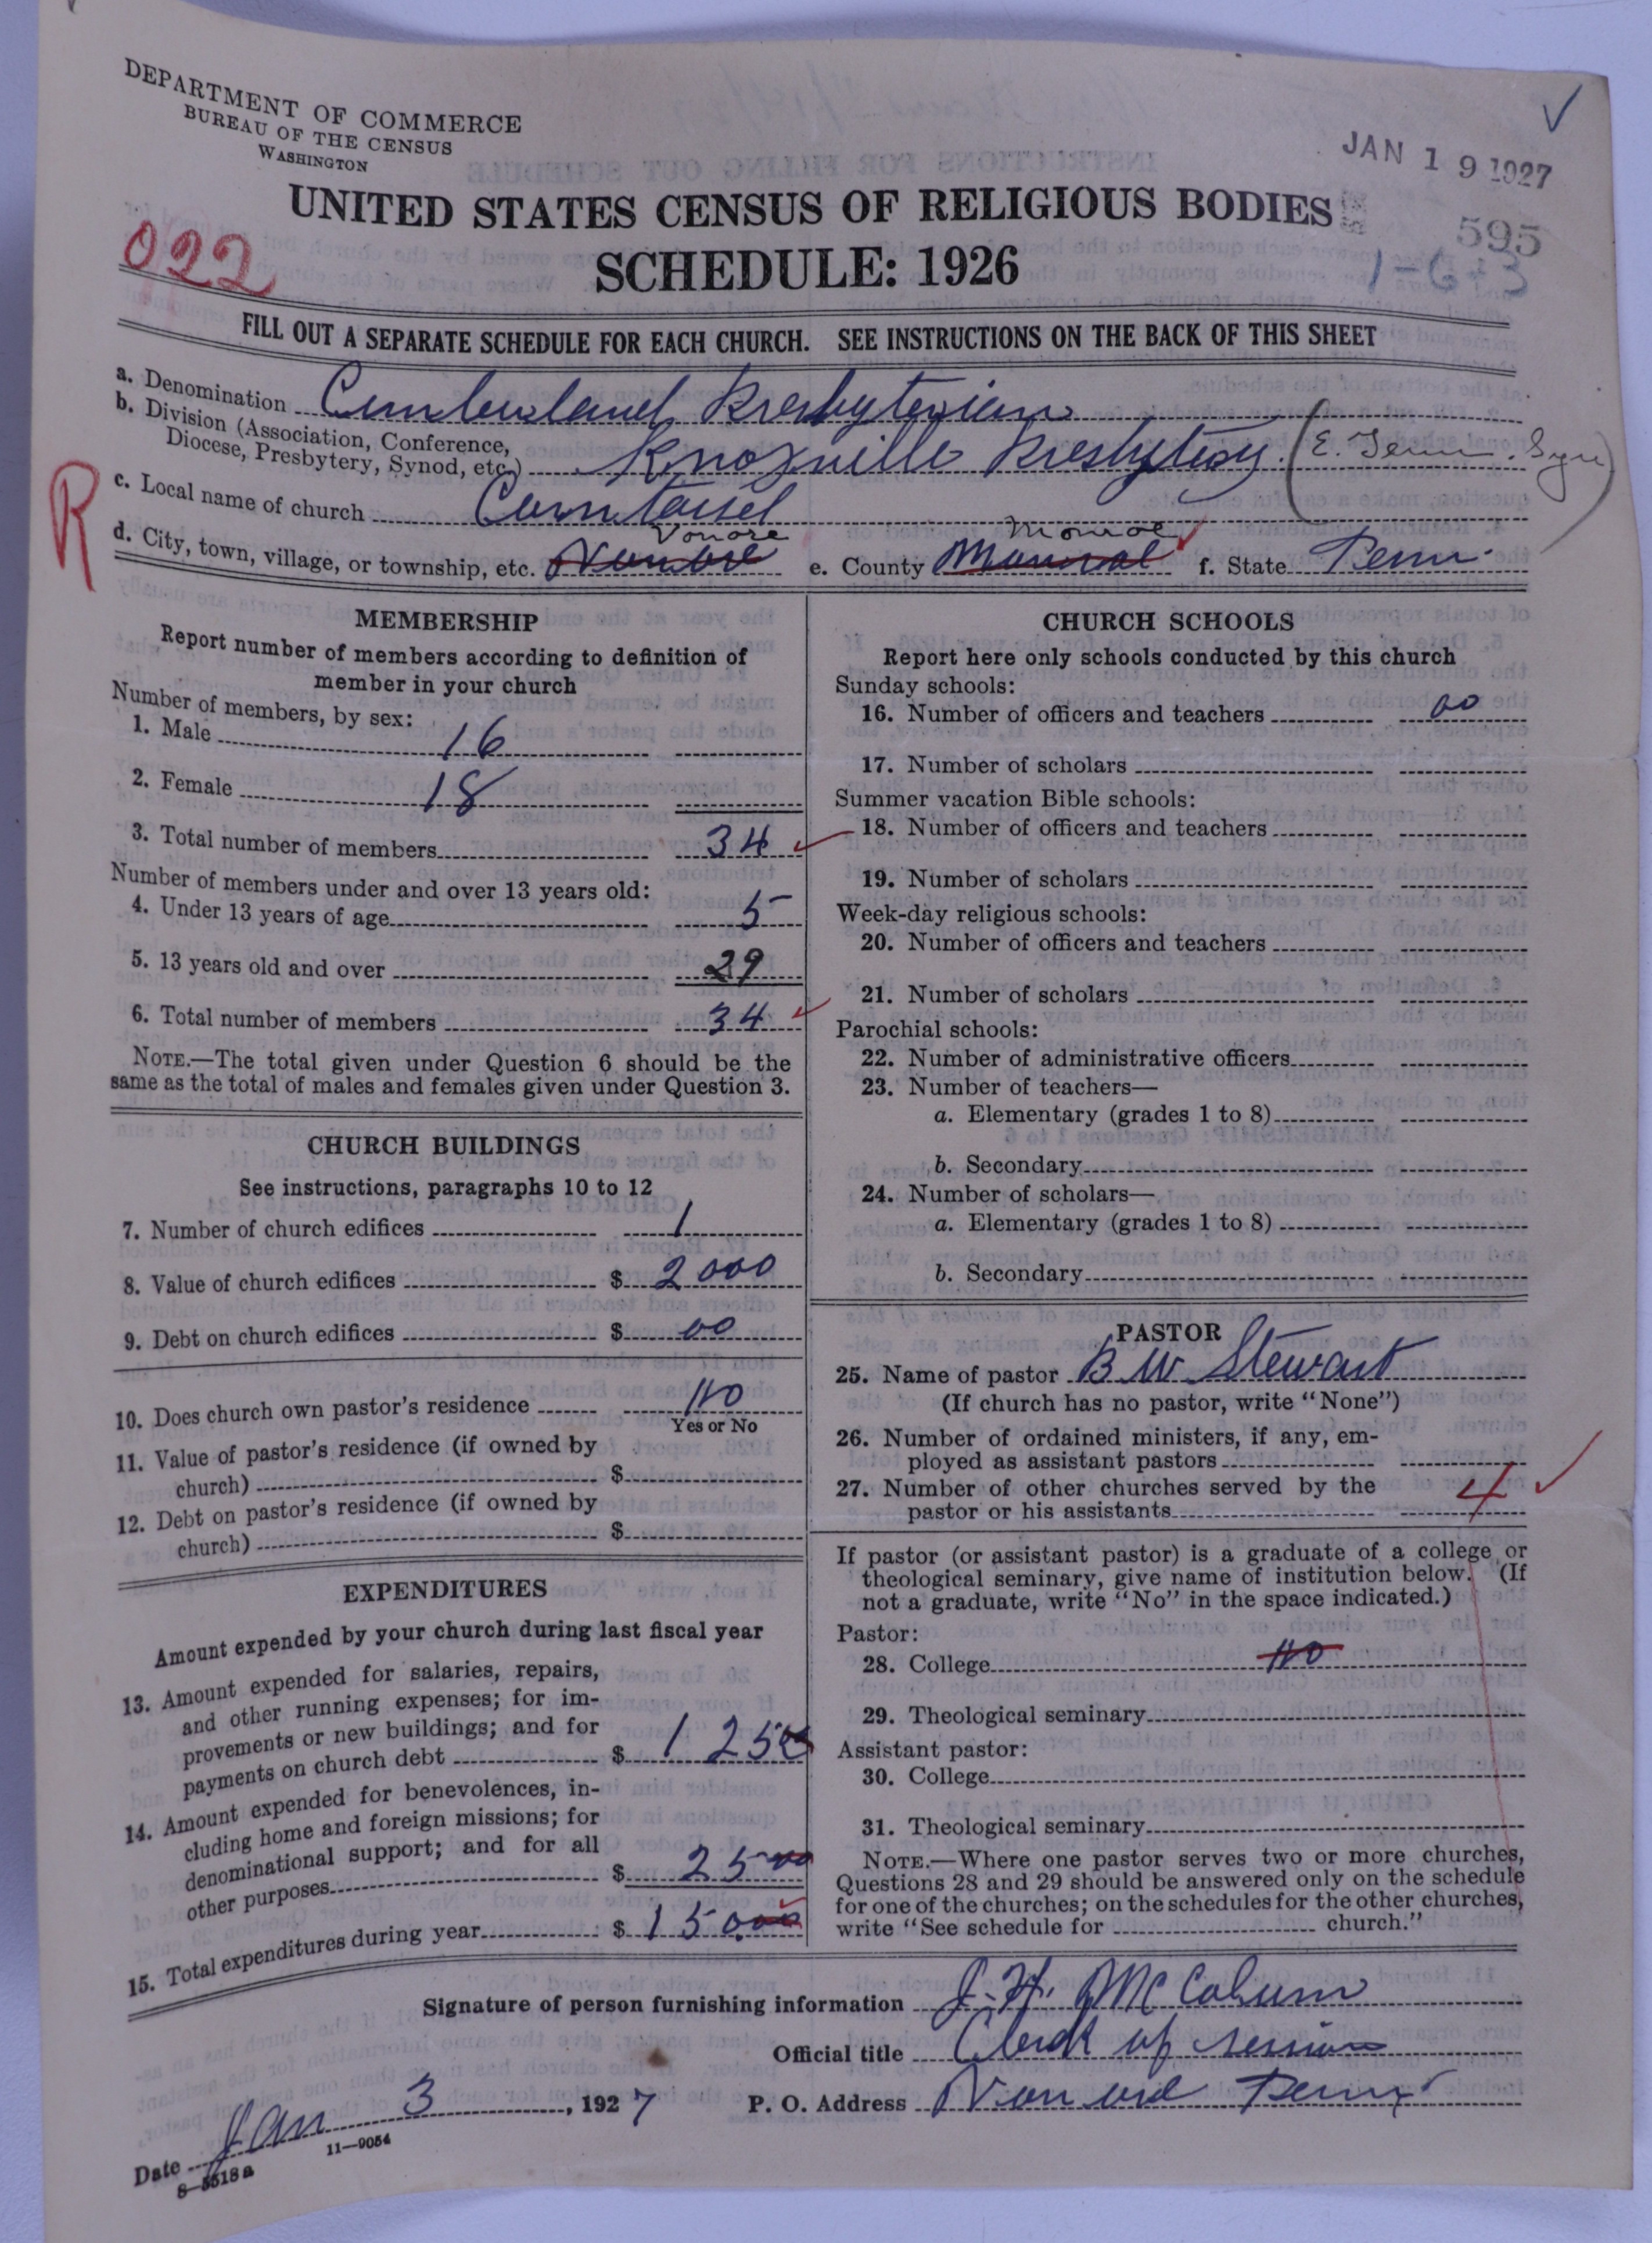 DEPARTMENT OF COMMERCE
BUREAU OF THE CENSUS
WASHINGTON
JAN 19 1927
UNITED STATES CENSUS OF RELIGIOUS BODIES
595
022
SCHEDULE: 1926
1-6-3
FILL OUT A SEPARATE SCHEDULE FOR EACH CHURCH. SEE INSTRUCTIONS ON THE BACK OF THIS SHEET
a. Denomination Cumberland Presbyterian
b. Division (Association, Conference, Diocese, Presbytery, Synod, etc.) Knoxville Presbytery. (E. Tenn. Syn)
R
c. Local name of church Corntassel
d. City, town, village, or township, etc. Vonore e. County Monroe f. State Tenn.
MEMBERSHIP
Report number of members according to definition of
member in your church
Number of members, by sex:
1. Male 16
2. Female 18
3. Total number of members 34
Number of members under and over 13 years old:
4. Under 13 years of age 5
5. 13 years old and over 29
6. Total number of members 34
NOTE.—The total given under Question 6 should be the
same as the total of males and females given under Question 3.
CHURCH BUILDINGS
See instructions, paragraphs 10 to 12
7. Number of church edifices 1
8. Value of church edifices $ 2000
9. Debt on church edifices $ 00
10. Does church own pastor's residence no
Yes or No
11. Value of pastor's residence (if owned by
church) $
12. Debt on pastor's residence (if owned by
church) $
EXPENDITURES
Amount expended by your church during last fiscal year
13. Amount expended for salaries, repairs,
and other running expenses; for im-
provements or new buildings; and for
payments on church debt $ 125
14. Amount expended for benevolences, in-
cluding home and foreign missions; for
denominational support; and for all
other purposes $ 25 00
15. Total expenditures during year $ 150.00
CHURCH SCHOOLS
Report here only schools conducted by this church
Sunday schools:
16. Number of officers and teachers 00
17. Number of scholars
Summer vacation Bible schools:
18. Number of officers and teachers
19. Number of scholars
Week-day religious schools:
20. Number of officers and teachers
21. Number of scholars
Parochial schools:
22. Number of administrative officers
23. Number of teachers—
a. Elementary (grades 1 to 8)
b. Secondary
24. Number of scholars—
a. Elementary (grades 1 to 8)
b. Secondary
PASTOR
25. Name of pastor B W Stewart
(If church has no pastor, write "None")
26. Number of ordained ministers, if any, em-
ployed as assistant pastors
27. Number of other churches served by the
pastor or his assistants 4
If pastor (or assistant pastor) is a graduate of a college or
theological seminary, give name of institution below. (If
not a graduate, write "No" in the space indicated.)
Pastor:
28. College no
29. Theological seminary
Assistant pastor:
30. College
31. Theological seminary
NOTE.—Where one pastor serves two or more churches,
Questions 28 and 29 should be answered only on the schedule
for one of the churches; on the schedules for the other churches,
write "See schedule for church."
Signature of person furnishing information J. H. McCollum
Official title Clerk of session
Date Jan 3, 1927 P. O. Address Vonore Tenn
11—9054
8—5518a